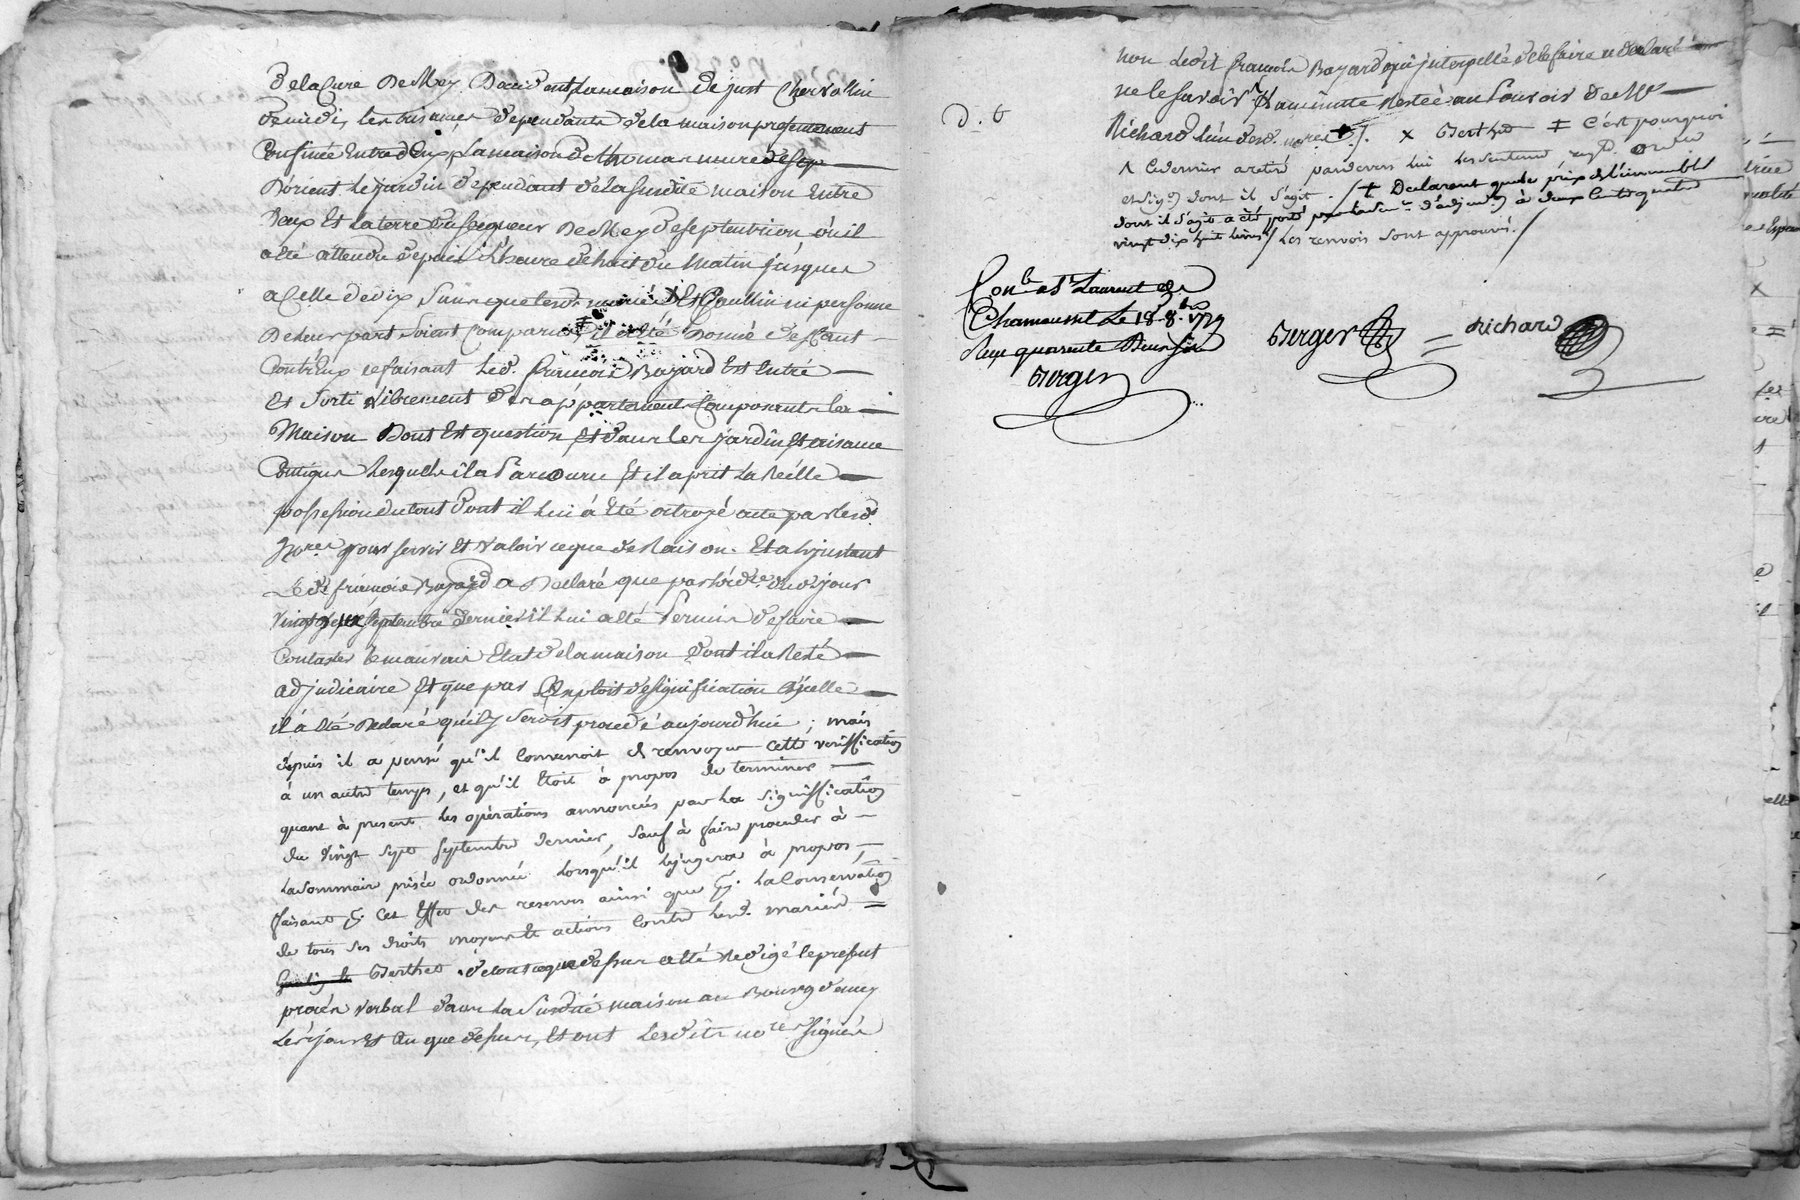 De la Cure De Mey D'occident La maison De just Chervallin
De midi, les aisances dependants de la maison presentement
Confinée Entre deux, La maison De thomas mure de sep
D'orient Le jardin dependant de La susdite maison Entre
Deux Et La terre du seigneur De Mey De septentrion où il
a été attendu depuis L'heure de huit du Matin jusques
a Celle de dix sans que lesd. mariés Et Paullin ni personne
De leur part soient Comparus ‡ il a été donné defaut
Contr'Eux ce faisant Led. françois Bayard Est Entré
Et Sorti Librement des appartements Composants la
Maison Dont Est question Et dans les jardin Et aisance
Contigus Lesquels il a Parcouru Et il a pris La Réelle
possession du tout Dont il Lui à Eté octroyé acte par lesd.
Nores pour servir Et valoir ce que de Raison. Et a L'instant
Le dt françois Bayard a Déclaré que par ordce du dt jour
vingt deux septembre dernier il Lui a été Permis De faire
Constater Le mauvais Etat de la maison dont il a Resté
adjudicaire Et que par Exploit de signification d'icelle
il a été Declaré qu'il y Seroit procedé aujourd'hui ; mais
depuis il a pensé qu'il Convenoit de renvoyer cette veriffication
à un autre temps, et qu'il Etoit à propos de terminer
quant à present les opérations annoncées par La signiffication
du vingt sept septembre dernier, sauf à faire proceder à
La Sommaire prisée ordonnée Lorsqu'il Le jugera à propos,
faisant pr. Cet Effet des reserves ainsi que pr. La Conservation
de tous ses droits moyens et actions Contre Lesd. mariés =
Berthet . de tout ce que dessus a été Redigé le present
procès verbal dans La Susdite maison au Bourg d'
Les jour Et An que dessus, Et ont Lesdits nores signés
non Ledit françois Bayard qui interpellé de le faire a declaré
ne le savoir La minutte Restée au Pouvoir De Me
D. C
Richard L'un desd. nores ./. × Berthet ‡ C'est pourquoi
Λ Ce dernier a retiré pardevers lui Les Sentence, reqt. ordce
et sigon dont il s'agit ./ + Declarant que le prix de L'immeuble
dont il s'agit a été porté par la Sence d'adjudon à deux Cents quatre
vingt dix huit Livres / Les renvois Sont approuvés ./
Conle a St Laurent de
Chamousset Le 18. 8.bre 1779
Reçu quarante Deux sols
Berger
Berger = Richard